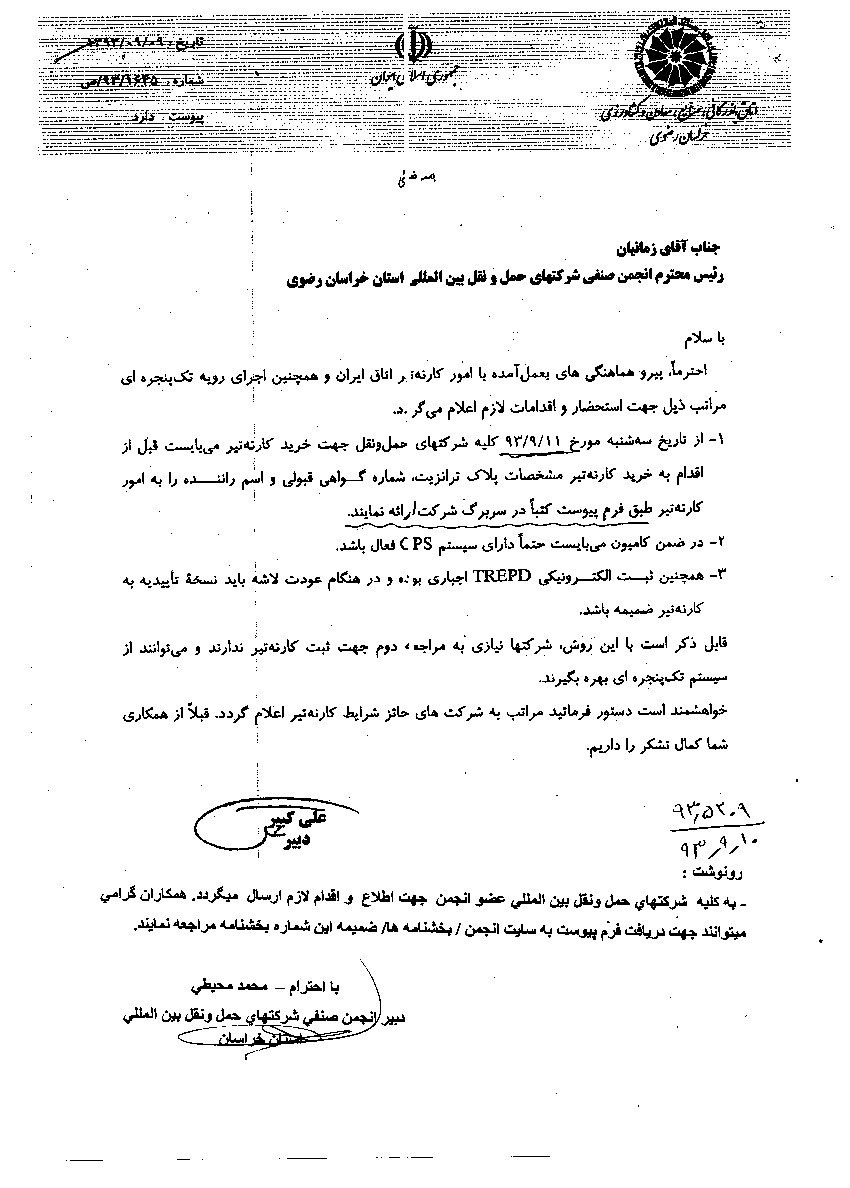 تاریخ: ۱۳۹۳/۰۹/۰۹
شماره: ۹۳/۱۶۴۵/ص
پیوست دارد
جمهوری اسلامی ایران
اتاق بازرگانی، صنایع، معادن و کشاورزی
خراسان رضوی
جناب آقای زمانیان
رئیس محترم انجمن صنفی شرکتهای حمل و نقل بین المللی استان خراسان رضوی
با سلام
احتراماً، پیرو هماهنگی های بعمل‌آمده با امور کارنه‌تیر اتاق ایران و همچنین اجرای رویه تک‌پنجره ای
مراتب ذیل جهت استحضار و اقدامات لازم اعلام می‌گردد.
۱- از تاریخ سه‌شنبه مورخ ۹۳/۹/۱۱ کلیه شرکتهای حمل‌ونقل جهت خرید کارنه‌تیر می‌بایست قبل از
اقدام به خرید کارنه‌تیر مشخصات پلاک ترانزیت، شماره گواهی قبولی و اسم راننده را به امور
کارنه‌تیر طبق فرم پیوست کتباً در سربرگ شرکت ارائه نمایند.
۲- در ضمن کامیون می‌بایست حتماً دارای سیستم CPS فعال باشد.
۳- همچنین ثبت الکترونیکی TREPD اجباری بوده و در هنگام عودت لاشه باید نسخهٔ تأییدیه به
کارنه‌تیر ضمیمه باشد.
قابل ذکر است با این روش، شرکتها نیازی به مراجعه دوم جهت ثبت کارنه‌تیر ندارند و می‌توانند از
سیستم تک‌پنجره ای بهره بگیرند.
خواهشمند است دستور فرمائید مراتب به شرکت های حائز شرایط کارنه‌تیر اعلام گردد. قبلاً از همکاری
شما کمال تشکر را داریم.
علی کبیر
دبیر
۹۳٫۵۲۰۹
۹۳٫۹٫۱۰
رونوشت :
- به کلیه شرکتهاي حمل ونقل بین المللي عضو انجمن جهت اطلاع و اقدام لازم ارسال میگردد. همکاران گرامي
میتوانند جهت دریافت فرم پیوست به سایت انجمن / بخشنامه ها/ ضمیمه این شماره بخشنامه مراجعه نمایند.
با احترام – محمد محیطي
دبیر انجمن صنفي شرکتهاي حمل ونقل بین المللي
استان خراسان